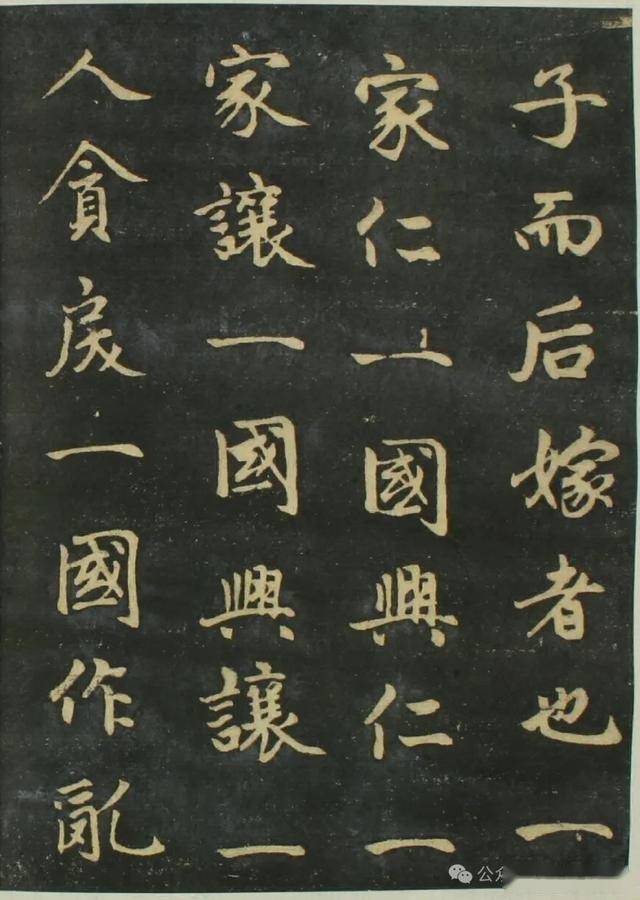 子而后嫁者也一
家仁一國興仁一
家讓一國興讓一
人貪戾一國作亂
公众